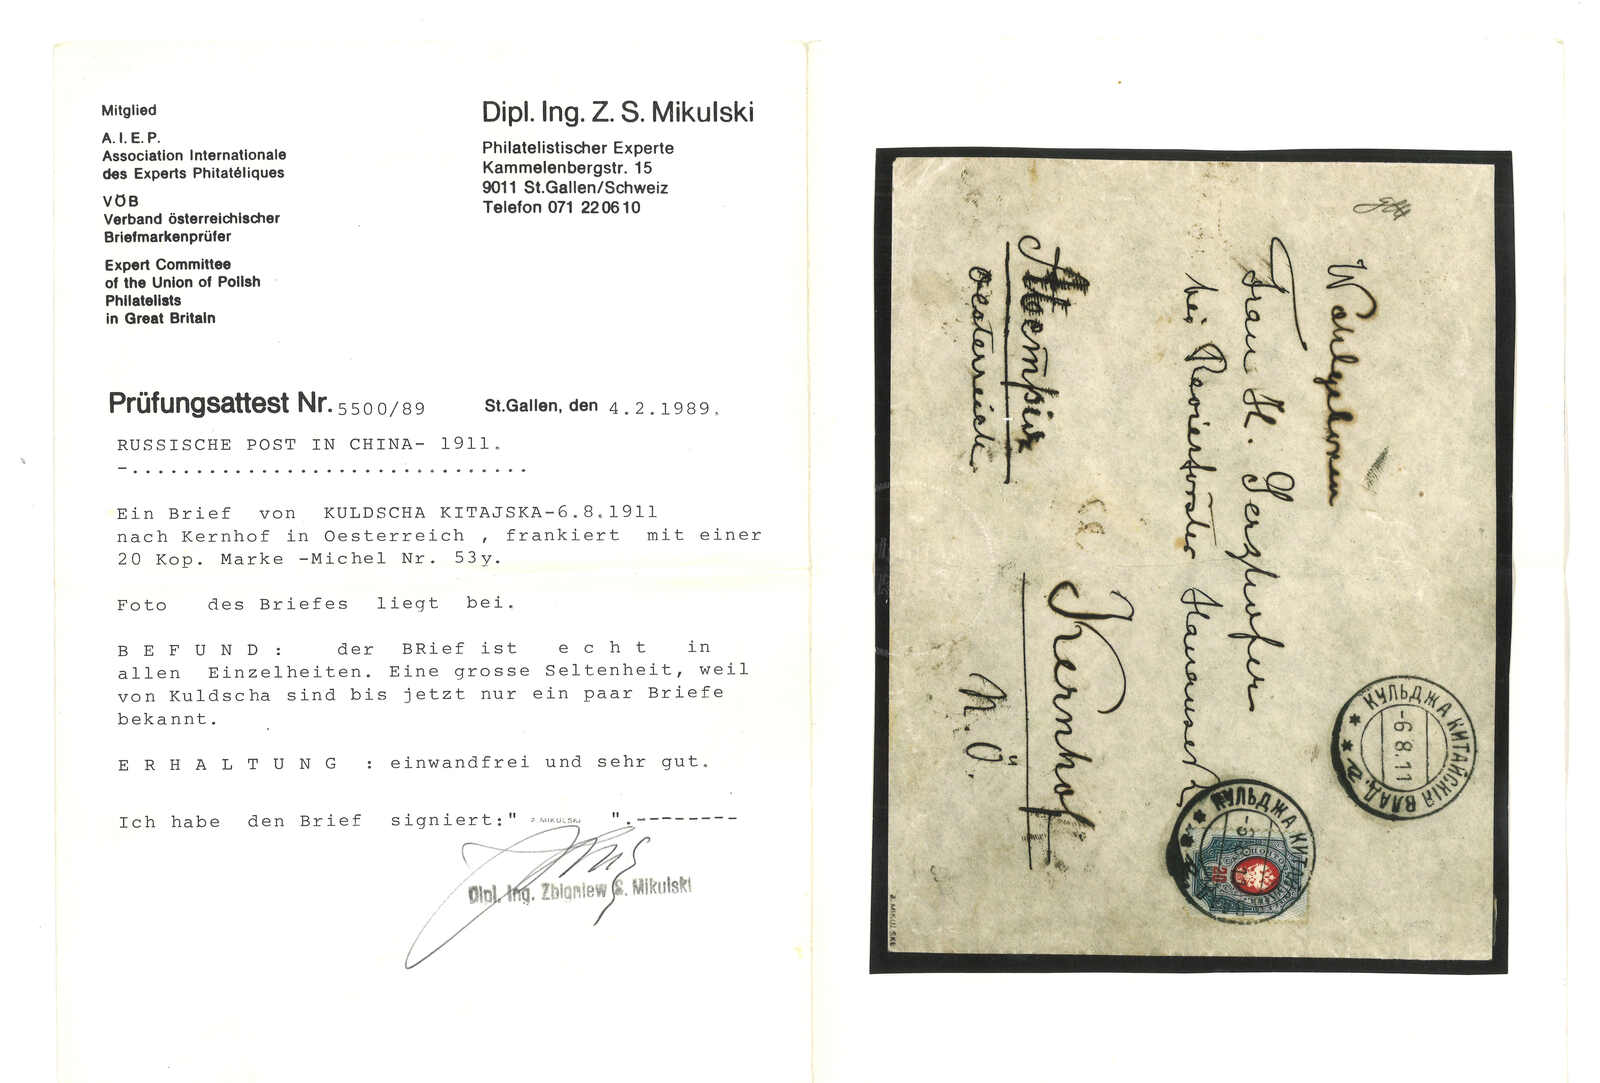 Mitglied
A.I.E.P.
Association Internationale
des Experts Philatéliques
VÖB
Verband österreichischer
Briefmarkenprüfer
Expert Committee
of the Union of Polish
Philatelists
in Great Britain
Dipl. Ing. Z. S. Mikulski
Philatelistischer Experte
Kammelenbergstr. 15
9011 St.Gallen/Schweiz
Telefon 071 220610
Prüfungsattest Nr. 5500/89 St.Gallen, den 4.2.1989.
RUSSISCHE POST IN CHINA- 1911.
-...............................
Ein Brief von KULDSCHA KITAJSKA-6.8.1911
nach Kernhof in Oesterreich , frankiert mit einer
20 Kop. Marke -Michel Nr. 53y.
Foto des Briefes liegt bei.
B E F U N D : der BRief ist e c h t in
allen Einzelheiten. Eine grosse Seltenheit, weil
von Kuldscha sind bis jetzt nur ein paar Briefe
bekannt.
E R H A L T U N G : einwandfrei und sehr gut.
Ich habe den Brief signiert:" Z. MIKULSKI ".--------
Dipl. Ing. Zbigniew S. Mikulski
Wohlgeboren
Frau H. Gerzhofer
bei Revierförster
Kernhof
N.Ö.
Oesterreich
КУЛЬДЖА КИТАЙСКІЯ ВЛАД.
-6 8.11
КУЛЬДЖА КИТ
20
Z. MIKULSKI